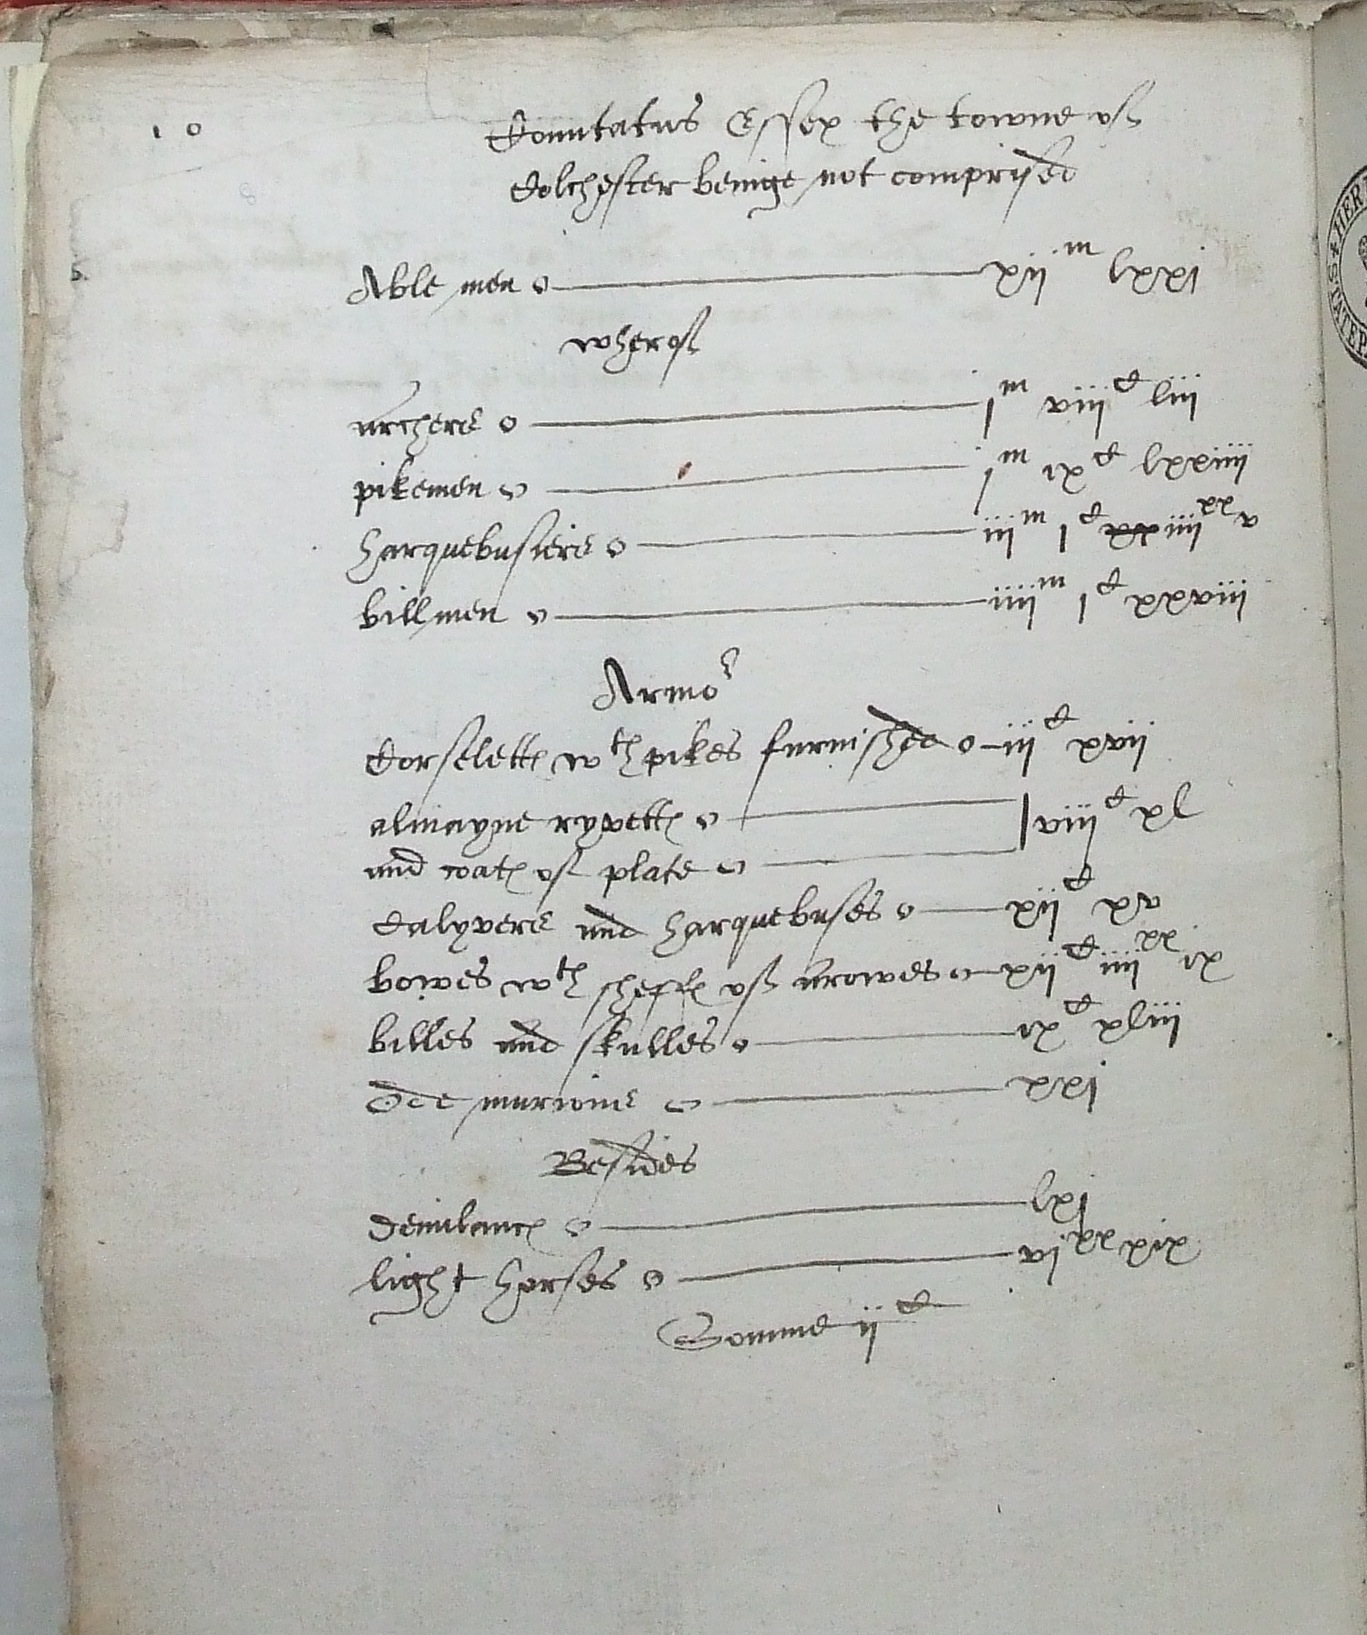 10
Comitatus Essex the towne of
Colchester beinge not comprised
Able men xii^m lxxj
wherof
archers j^m viii^c liii
pikemen j^m ix^c lxxiiii
harquebusiers iii^m j^c xx iiii^xx v
billmen iiii^m j^c xxviii
Armo^r
Corseletts w^th pikes furnished iii^c xvii
almayne ryvetts
and coats of plate viii^c xl
Calyvers and harquebuses xii^c xv
bowes w^th sheffs of arowes xii^c iiii^xx ix
billes and skulles ix^c xliii
Ode murions xxj
Besides
demilances lxj
light horses vj^xx xix
Somme ii^c